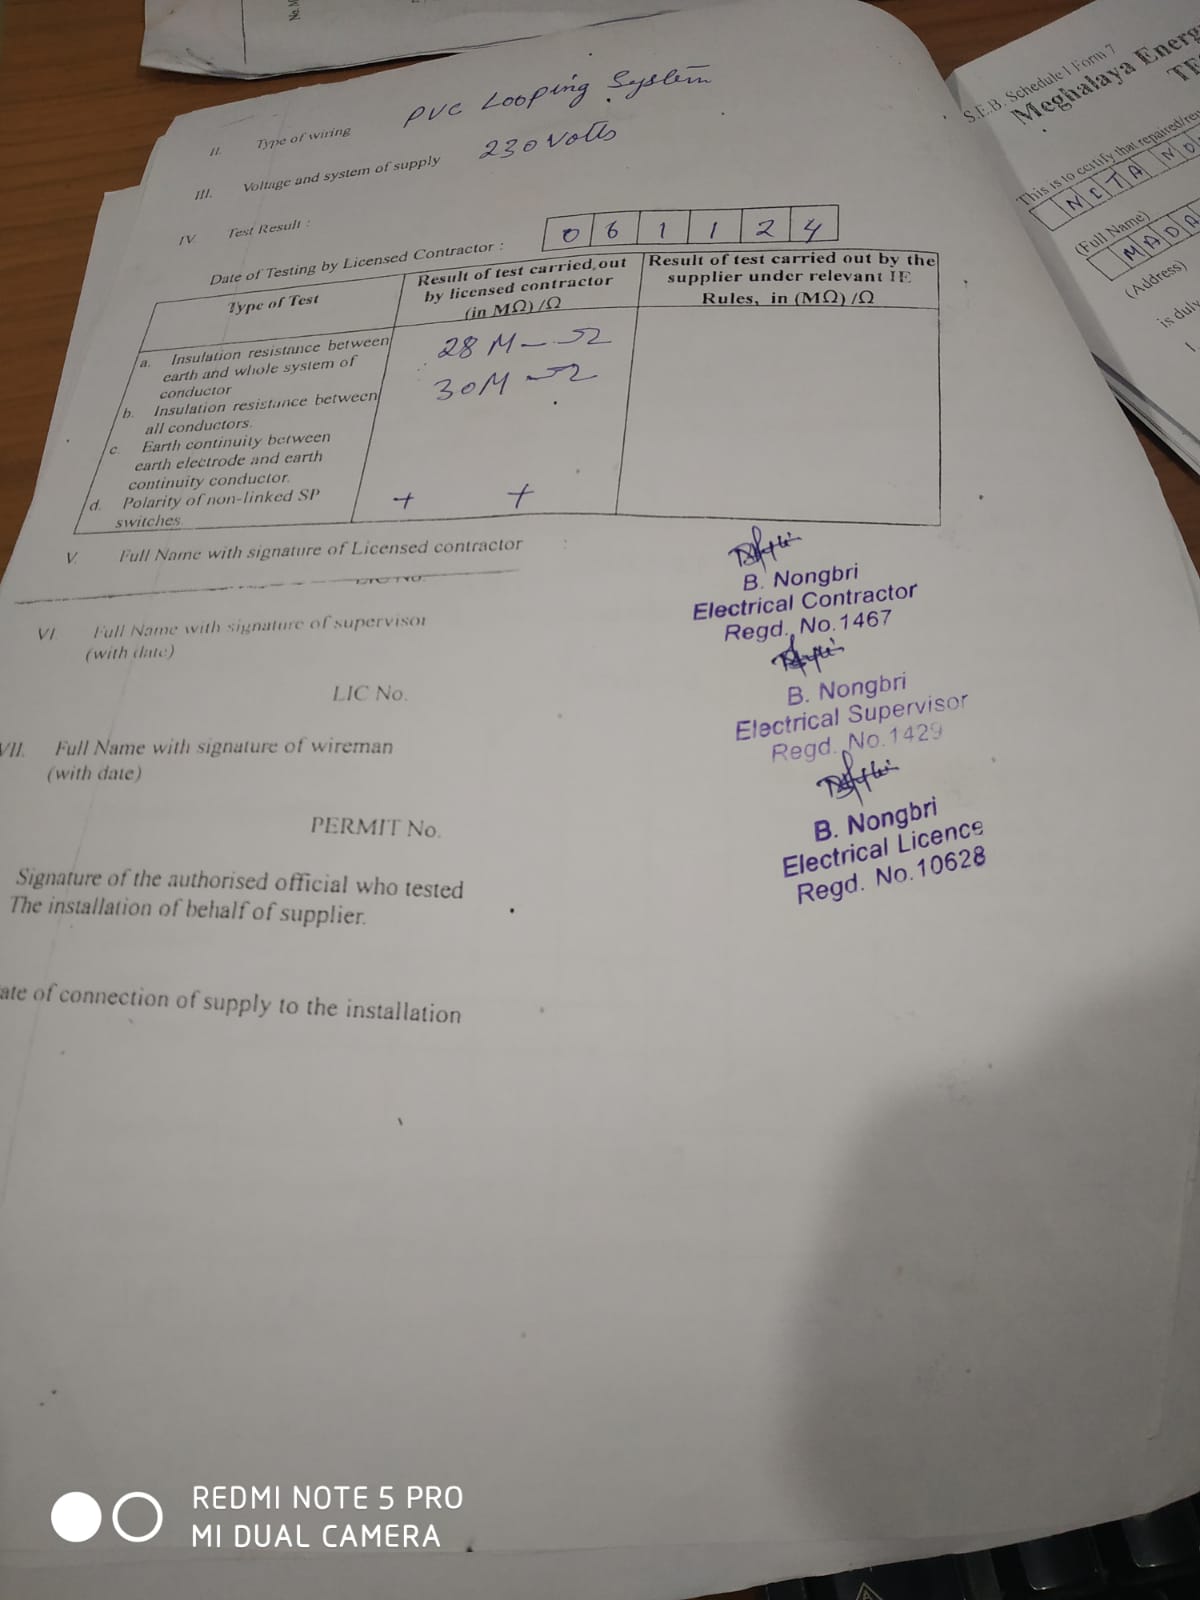 No. M
II. Type of wiring PVC Looping System
III. Voltage and system of supply 230 Volts
IV Test Result :
Date of Testing by Licensed Contractor : 0 6 1 1 2 4
Type of Test
Result of test carried out
by licensed contractor
(in MΩ) /Ω
Result of test carried out by the
supplier under relevant IE
Rules, in (MΩ) /Ω
a. Insulation resistance between
earth and whole system of
conductor
28 M-Ω
b. Insulation resistance between
all conductors.
30M-Ω
c. Earth continuity between
earth electrode and earth
continuity conductor.
d. Polarity of non-linked SP
switches.
+ +
V. Full Name with signature of Licensed contractor :
LIC NO.
B. Nongbri
Electrical Contractor
Regd. No.1467
VI. Full Name with signature of supervisor
(with date)
LIC No.
B. Nongbri
Electrical Supervisor
Regd. No.1429
VII. Full Name with signature of wireman
(with date)
PERMIT No.
B. Nongbri
Electrical Licence
Regd. No.10628
Signature of the authorised official who tested
The installation of behalf of supplier.
ate of connection of supply to the installation
S.E.B. Schedule I Form 7
Meghalaya Energ
TES
This is to certify that repaired/re
N I T A M O
(Full Name)
M A D A
(Address)
is duly
REDMI NOTE 5 PRO
MI DUAL CAMERA